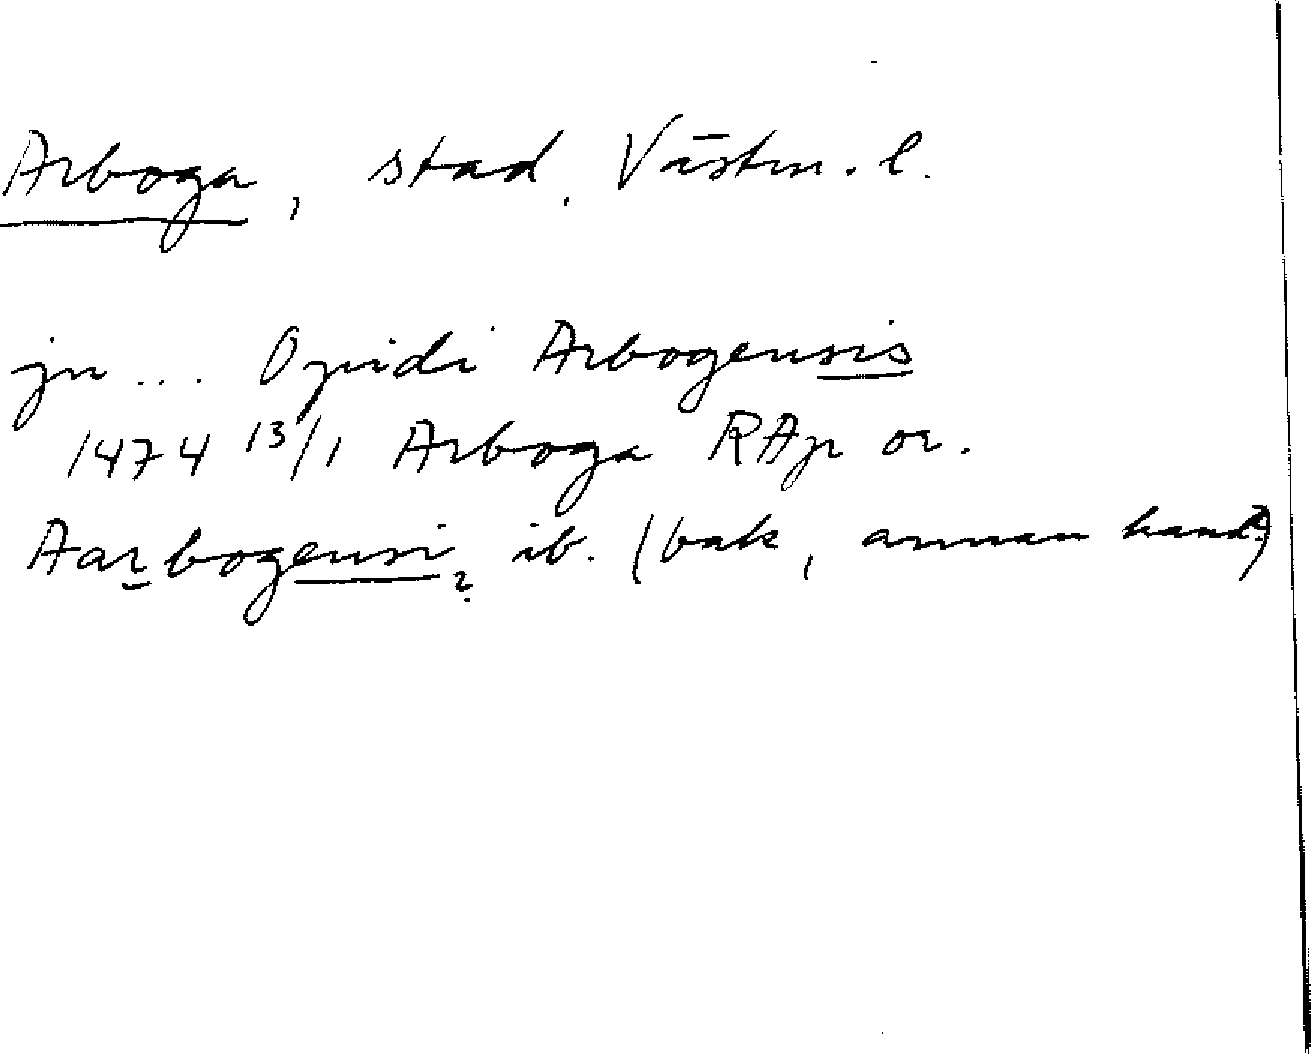 Arboga, stad, Västm. l.
jn ... Opidi Arbogensis
1474 13/1 Arboga RAp or.
Aarbogensi ? ib. (bak, annan hand?)